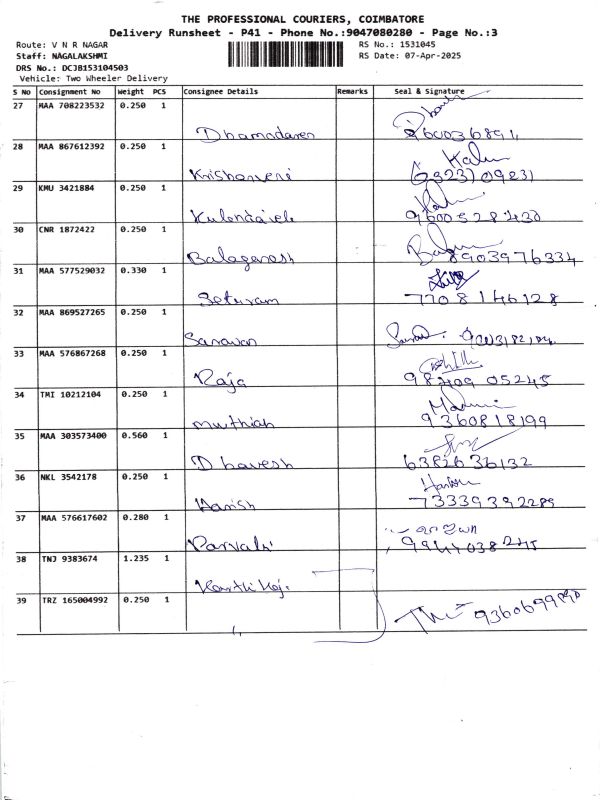 THE PROFESSIONAL COURIERS, COIMBATORE
Delivery Runsheet - P41 - Phone No.:9047080280 - Page No.:3
Route: V N R NAGAR
RS No.: 1531045
Staff: NAGALAKSHMI
RS Date: 07-Apr-2025
DRS No.: DCJB153104503
Vehicle: Two Wheeler Delivery
S No Consignment No Weight PCS Consignee Details Remarks Seal & Signature
27 MAA 708223532 0.250 1
Dhamodaren
28 MAA 867612392 0.250 1
Krishnaveni 6323709231
29 KMU 3421884 0.250 1
9600528430
30 CNR 1872422 0.250 1
Balaganesh 8903976334
31 MAA 577529032 0.330 1
Seturam 7708146128
32 MAA 869527265 0.250 1
Saravan
33 MAA 576867268 0.250 1
Raja 98409 05245
34 TMI 10212104 0.250 1
muthiah 9360818199
35 MAA 303573400 0.560 1
Dhavesh 6382636132
36 NKL 3542178 0.250 1
Harish 73339392289
37 MAA 576617602 0.280 1
Parvati 9944038245
38 TNJ 9383674 1.235 1
39 TRZ 165004992 0.250 1